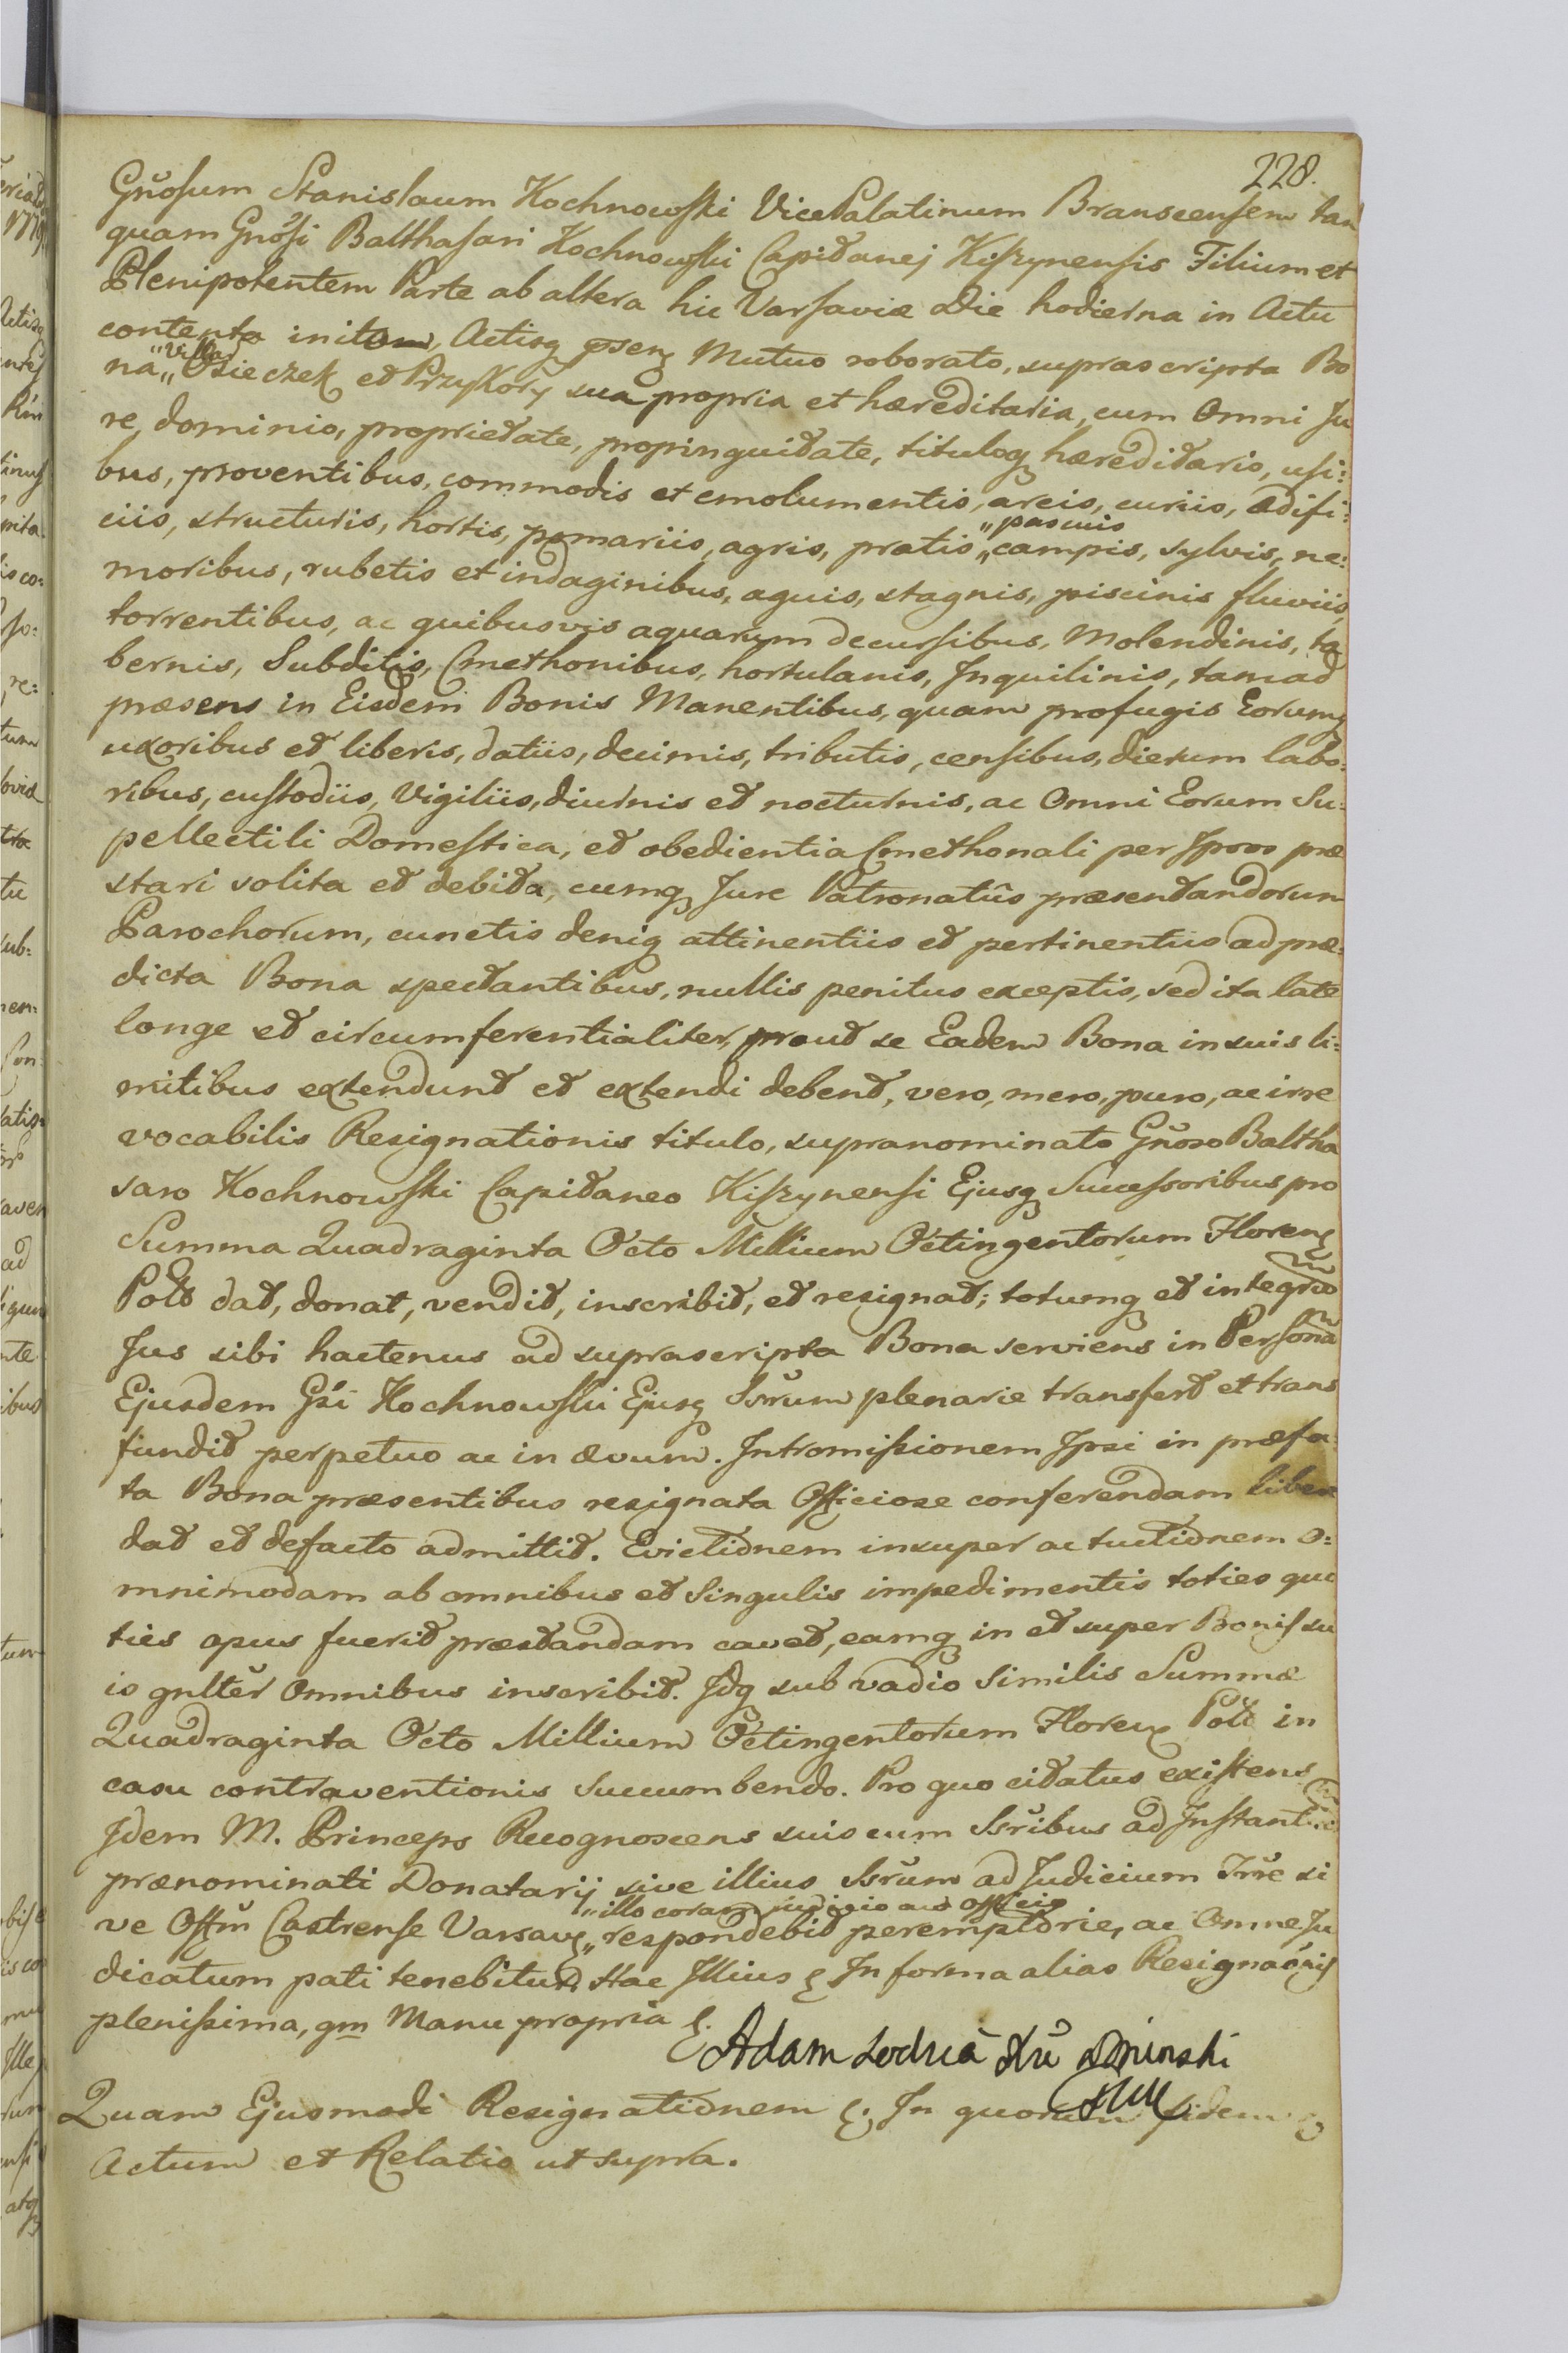 228.
Gnŏsum Stanislaum Kochnowski VicePalatinum Branscensem tan
quam Gnŏsi Balthasari Kochnowski Capitanej Kiszynensis Filium et
Plenipotentem Parte ab altera hic Varsaviæ Die hodierna in Actu
contento initom, Actisq̨ pseng Mutuo roborato, suprascripta Bo
na „Villas „ Osieczek et Przykory sua propria et hæreditaria, cum Omni Ju
re, dominio, proprietate, propinquitate, tituloq̨ hæreditario, usi:
bus, proventibus, commodis et emolumentis, areis, curiis, ædifi:
ciis, structuris, hortis, pomariis, agris, pratis „pascuis „campis, sylvis, ne:
moribus, rubetis et indaginibus, aquis, stagnis, piscinis fluviis,
torrentibus, ac quibusvis aquarum decursibus, Molendinis, ta
bernis, Subditis, Cmethonibus, hortulanis, Inquilinis, tam ad
præsens in Eisdem Bonis Manentibus, quam profugis Eorumq̨
uxoribus et liberis, datiis, decimis, tributis, censibus, dierum labo:
ribus, custodiis, Vigiliis, diurnis et nocturnis, ac Omni Eorum Su:
pellectili Domestica, et obedientia Cmethonali per Ipsos præ
stari solita et debita, cumq̨ Jure Patronatûs præsentandorum
Parochorum, cunctis deniq̨ attinentiis et pertinentiis ad præ:
dicta Bona spectantibus, nullis penitus exceptis, sed ita late
longe et circumferentialiter, prout se Eadem Bona in suis li:
mitibus extendunt et extendi debent, vero, mero, puro, ac irre
vocabilis Resignationis titulo, supranominato Gnŏso Baltha
saro Kochnowski Capitaneo Kiszynensi Ejusq̨ Successoribus pro
Summa Quadraginta Octo Millium Octingentorum Floreng
Polŏ dat, donat, vendit, inscribit, et resignat; totumq̨ et integrum
Jus sibi hactenus ad suprascripta Bona serviens in Personam
Ejusdem Gsi Kochnowski Ejusq̨ Ssŏrum plenarie transfert et trans
fundit perpetuo ac in ævum. Intromissionem Ipsi in præfa:
ta Bona præsentibus resignata Officiose conferendam libere
dat et defacto admittit. Evictionem insuper ac tuitionem o:
mnimodam ab omnibus et Singulis impedimentis toties quo
ties opus fuerit præstandam cavet, eamq̨ in et super Bonis su
is gnltĕr Omnibus inscribit. Idq̨ sub vadio Similis Summæ
Quadraginta Octo Millium Octingentorum Floreng Polŏ in
casu contraventionis succumbendo. Pro quo citatus existens
Idem M. Princeps Recognoscens suis cum Ssŏribus ad Instantiam
prænominati Donatarij sive illius Ssŏrum ad Judicium Trrĕ si
ve Offm̃ Castrense Varsavg „illo coram judicio aut officio „respondebit peremptorie, ac Omne Ju
dicatum pati tenebitur. Hac Illius ę In forma alias Resignaõnis
plenissima, qm Manu propria ę.
Adam Lodzia
Quam Ejusmodi Resignationem ę. In quorum fidem ę
Actum et Relatio ut supra.